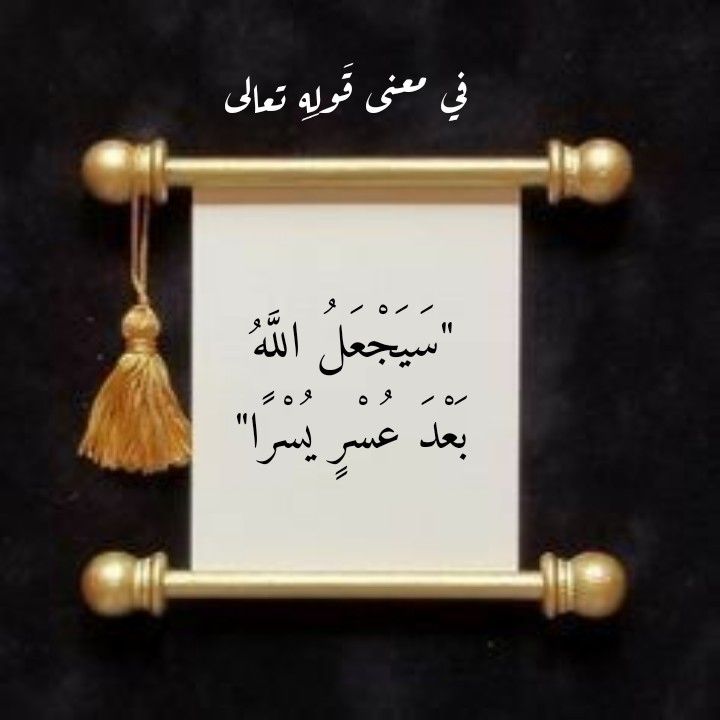 في معنى قَولِهِ تعالى
"سَيَجْعَلُ اللَّهُ
بَعْدَ عُسْرٍ يُسْرًا"